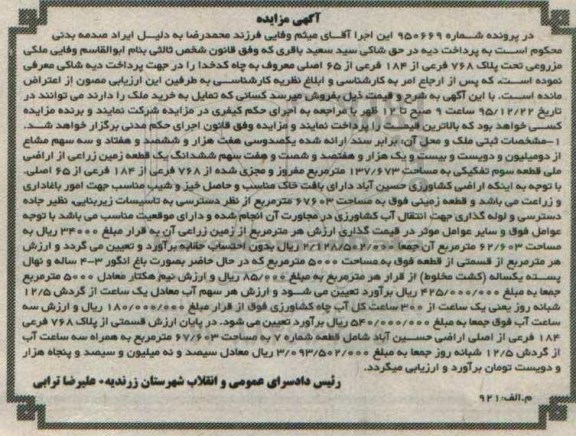 آگهی مزایده
در پرونده شماره ۹۵۰۶۶۹ این اجرا آقای میثم وفایی فرزند محمدرضا به دلیل ایراد صدمه بدنی
محکوم است به پرداخت دیه در حق شاکی سید سعید باقری که وفق قانون شخص ثالثی بنام ابوالقاسم وفایی ملکی
مزروعی تحت پلاک ۷۶۸ فرعی از ۱۸۴ فرعی از ۶۵ اصلی معروف به چاه کدخدا را در جهت پرداخت دیه شاکی معرفی
نموده است. که پس از ارجاع امر به کارشناسی و ابلاغ نظریه کارشناسی به طرفین این ارزیابی مصون از اعتراض
مانده است. با این آگهی به شرح و قیمت ذیل بفروش میرسد کسانی که تمایل به خرید ملک را دارند می توانند در
تاریخ ۹۵/۱۲/۲۲ ساعت ۹ صبح تا ۱۲ ظهر با مراجعه به اجرای حکم کیفری در مزایده شرکت نمایند و برنده مزایده
کسی خواهد بود که بالاترین قیمت را پرداخت نمایند و مزایده وفق قانون اجرای حکم مدنی برگزار خواهد شد.
۱-مشخصات ثبتی ملک و محل آن: برابر سند ارائه شده یکصدوسی هفت هزار و ششصد و هفتاد و سه سهم مشاع
از دومیلیون و دویست و بیست و یک هزار و هفتصد و شصت و هفت سهم ششدانگ یک قطعه زمین زراعی از اراضی
ملی قطعه سوم تفکیکی به مساحت ۱۳۷/۶۷۳ مترمربع مفروز و مجزی شده از ۷۶۸ فرعی از ۱۸۴ فرعی از ۶۵ اصلی.
با توجه به اینکه اراضی کشاورزی حسین آباد دارای بافت خاک مناسب و حاصل خیز و شیب مناسب جهت امور باغداری
و زراعت می باشد و قطعه زمینی فوق به مساحت ۶۷۶۰۳ مترمربع از نظر دسترسی به تاسیسات زیربنایی، نظیر جاده
دسترسی و لوله گذاری جهت انتقال آب کشاورزی در مجاورت آن انجام شده و دارای موقعیت مناسب می باشد با توجه
عوامل فوق و سایر عوامل موثر در قیمت گذاری ارزش هر مترمربع از زمین زراعی آن به قرار مبلغ ۳۴۰۰۰ ریال به
مساحت ۶۲/۶۰۳ مترمربع آن جمعا به مبلغ ۲/۱۲۸/۵۰۲/۰۰۰ ریال بدون احتساب حقابه برآورد و تعیین می گردد و ارزش
هر مترمربع از قسمتی از قطعه فوق به مساحت ۵۰۰۰ مترمربع که در حال حاضر بصورت باغ انگور ۳-۴ ساله و نهال
پسته یکساله (کشت مخلوط) از قرار هر مترمربع به مبلغ ۸۵/۰۰۰ ریال و ارزش نیم هکتار معادل ۵۰۰۰ مترمربع
جمعا به مبلغ ۴۲۵/۰۰۰/۰۰۰ ریال برآورد تعیین می شود و ارزش هر سهم آب معادل یک ساعت از گردش ۱۲/۵
شبانه روز یعنی یک ساعت از ۳۰۰ ساعت کل آب چاه کشاورزی فوق از قرار مبلغ ۱۸۰/۰۰۰/۰۰۰ ریال و ارزش سه
ساعت آب فوق جمعا به مبلغ ۵۴۰/۰۰۰/۰۰۰ ریال برآورد تعیین می شود. در پایان ارزش قسمتی از پلاک ۷۶۸ فرعی
۱۸۴ فرعی از اصلی اراضی حسین آباد شامل قطعه شماره ۷ به مساحت ۶۷/۶۰۳ مترمربع به همراه سه ساعت آب
از گردش ۱۲/۵ شبانه روز جمعا به مبلغ ۳/۰۹۳/۵۰۲/۰۰۰ ریال معادل سیصد و نه میلیون و سیصد و پنجاه هزار
و دویست تومان برآورد و ارزیابی میگردد.
رئیس دادسرای عمومی و انقلاب شهرستان زرندیه- علیرضا ترابی
م.الف:۹۲۱